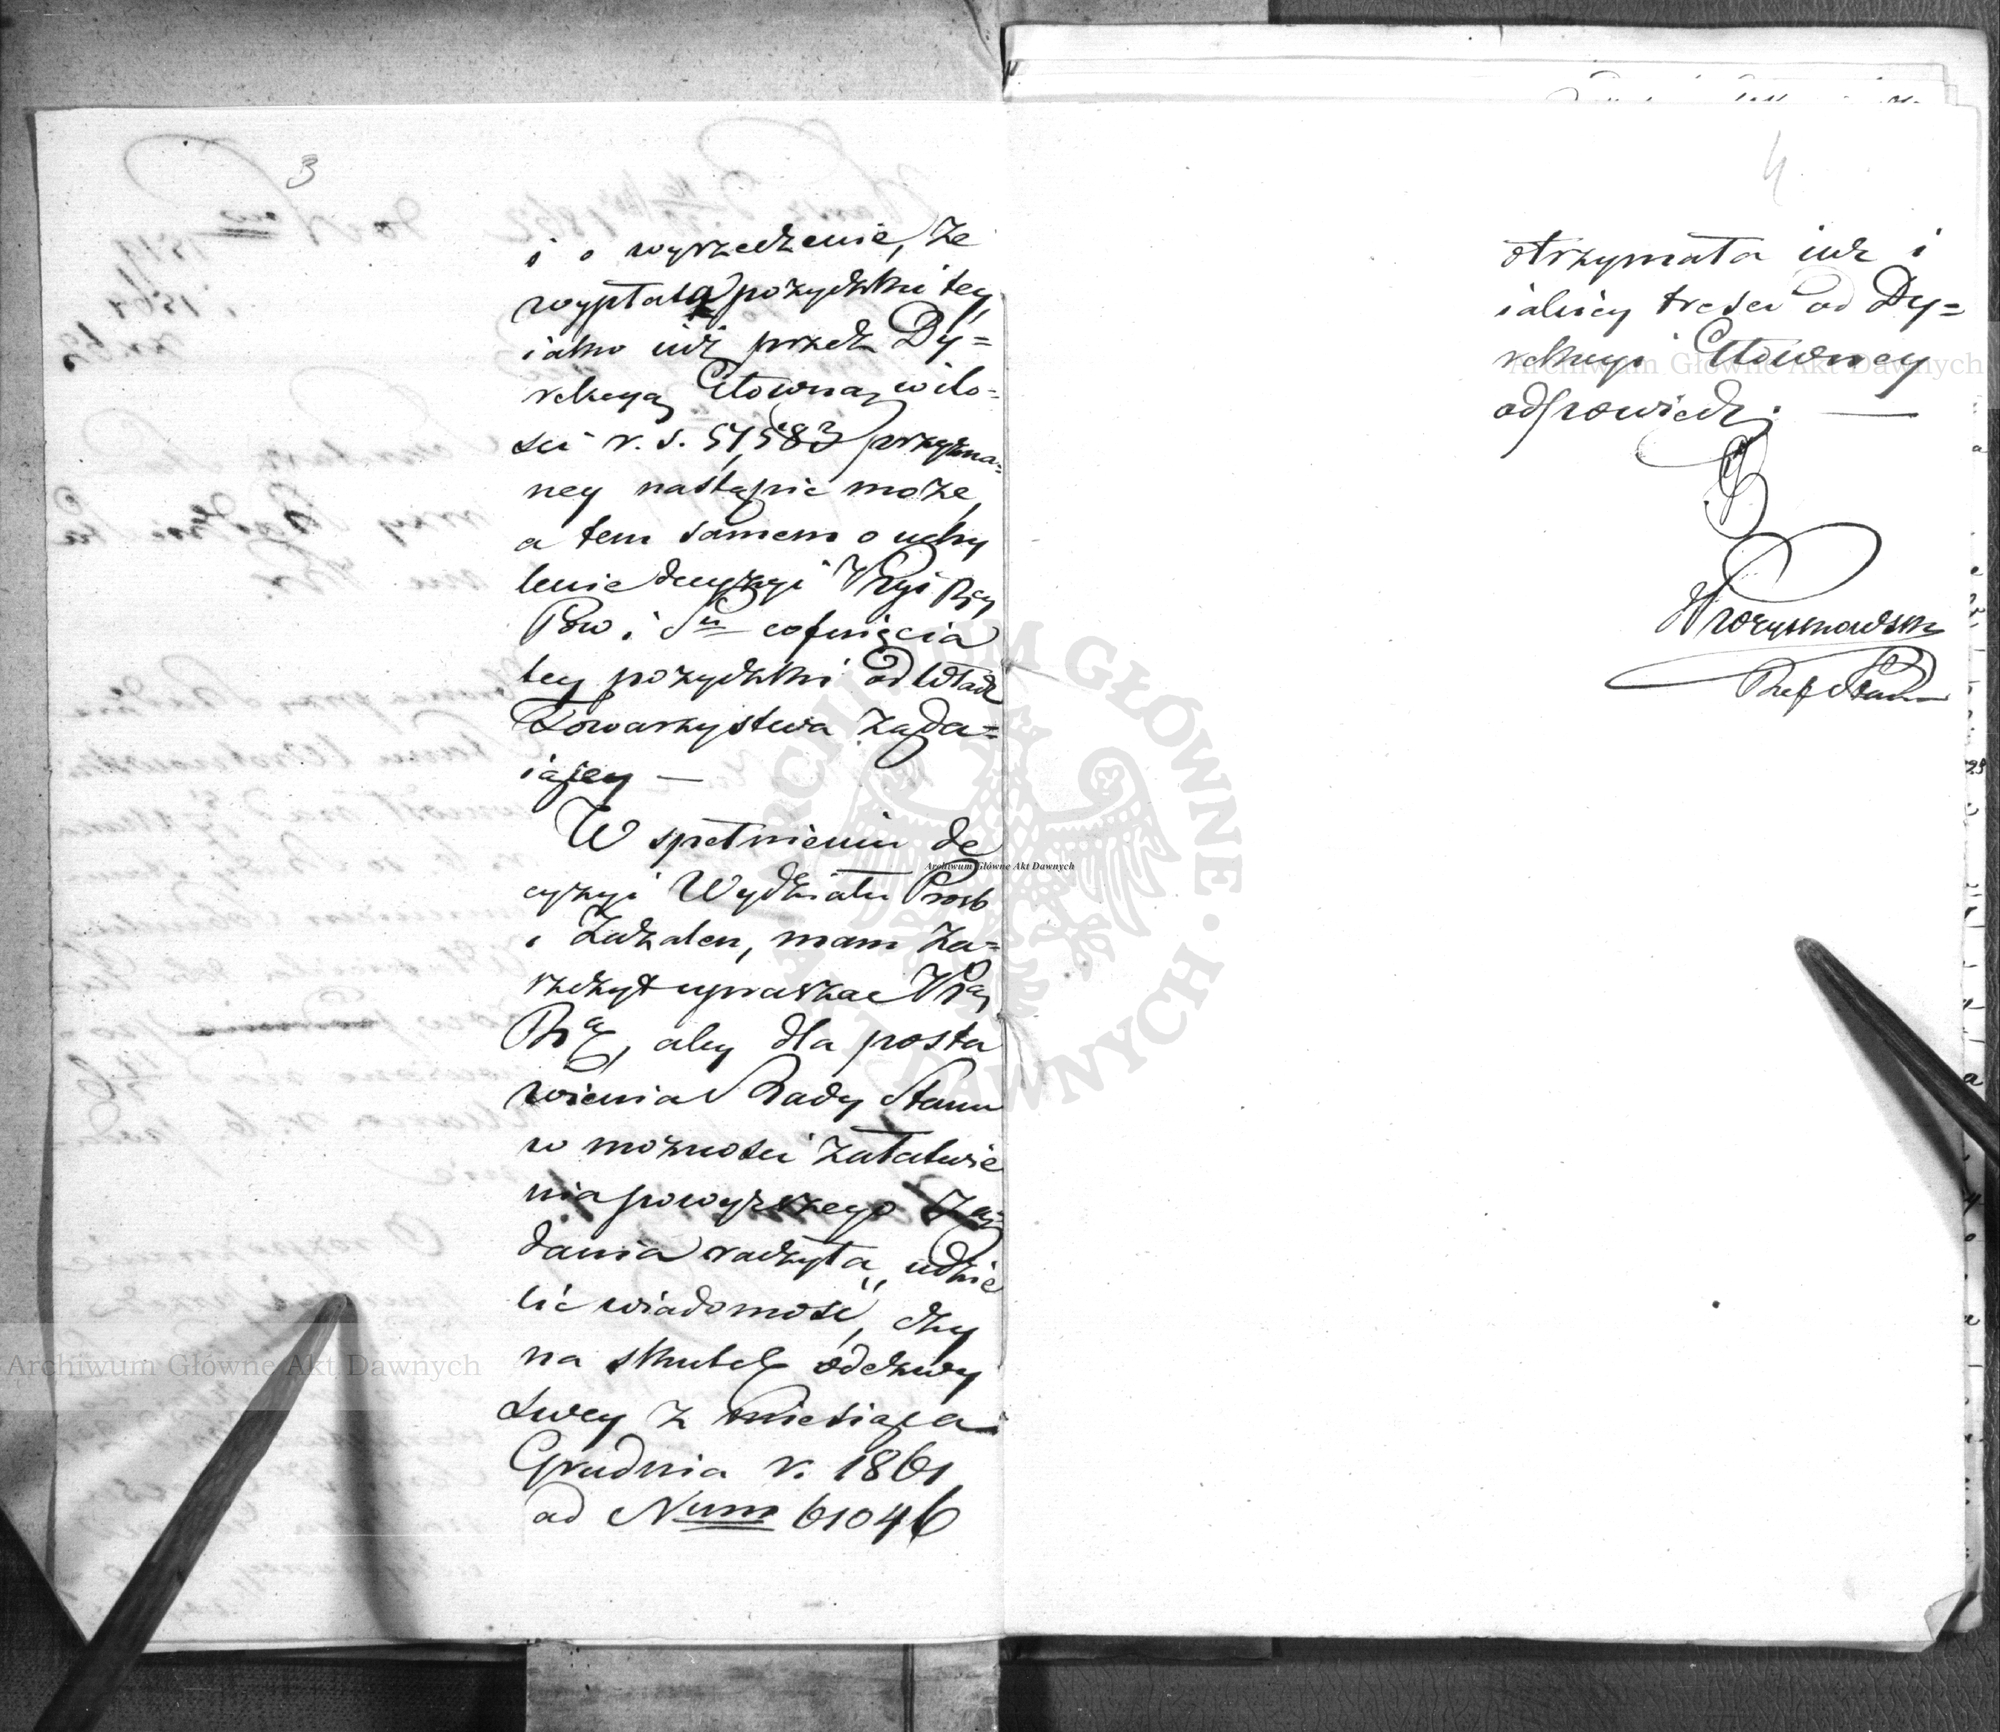 3
i o wyrzeczenie, że
wypłata pożyczki tey,
iako iuż przez Dy=
rekcyą Główną w ilo-
ści r. s. 51,583 przyzna=
ney nastąpić może,
a tem samem o uchy
lenie decyzyi Kkyi Rzey
Pow i Su cofnięcia
tey pożyczki od Władz
Towarzystwa żąda=
iącey —
W spełnieniu de
cyzyi Wydziału Prośb
i Zażaleń, mam za=
szczyt upraszać
aby dla posta
wienia Rady Stanu
w możności załatwie
nia powyższego żą=
dania raczyła, udzie
lić wiadomość, czy
na skutek odezwy
swey z miesiąca
Grudnia r. 1861
ad Num 61046
4
otrzymała iuż i
iakiey treści od Dy=
rekcyi Główney
odpowiedź. —
Archiwum Główne Akt Dawnych
Archiwum Główne Akt Dawnych
Archiwum Główne Akt Dawnych
ARCHIWUM GŁÓWNE · AKT DAWNYCH ·